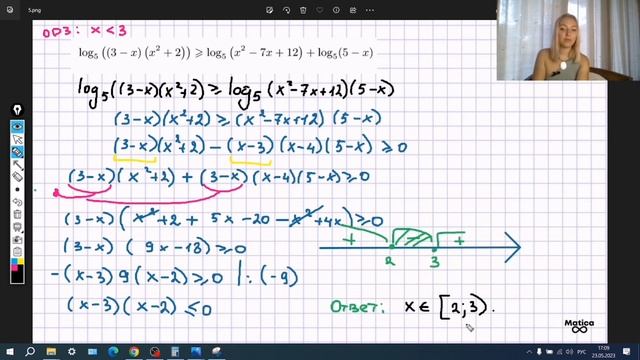 5.png
ОДЗ: x < 3
log₅ ((3 − x) (x² + 2)) ⩾ log₅ (x² − 7x + 12) + log₅(5 − x)
log₅ ((3-x)(x²+2) ⩾ log₅ (x²-7x+12)(5-x)
(3-x)(x²+2) ⩾ (x²-7x+12) (5-x)
(3-x)(x²+2) - (x-3)(x-4)(5-x) ⩾ 0
(3-x)(x²+2) + (3-x)(x-4)(5-x) ⩾ 0
(3-x) (x²+2 + 5x-20-x²+4x) ⩾ 0
(3-x) (9x-18) ⩾ 0
-(x-3) 9 (x-2) ⩾ 0 |: (-9)
(x-3)(x-2) ⩽ 0
+ - +
2 3
Ответ: x ∈ [2; 3).
Matica
17:09
РУС
23.05.2023